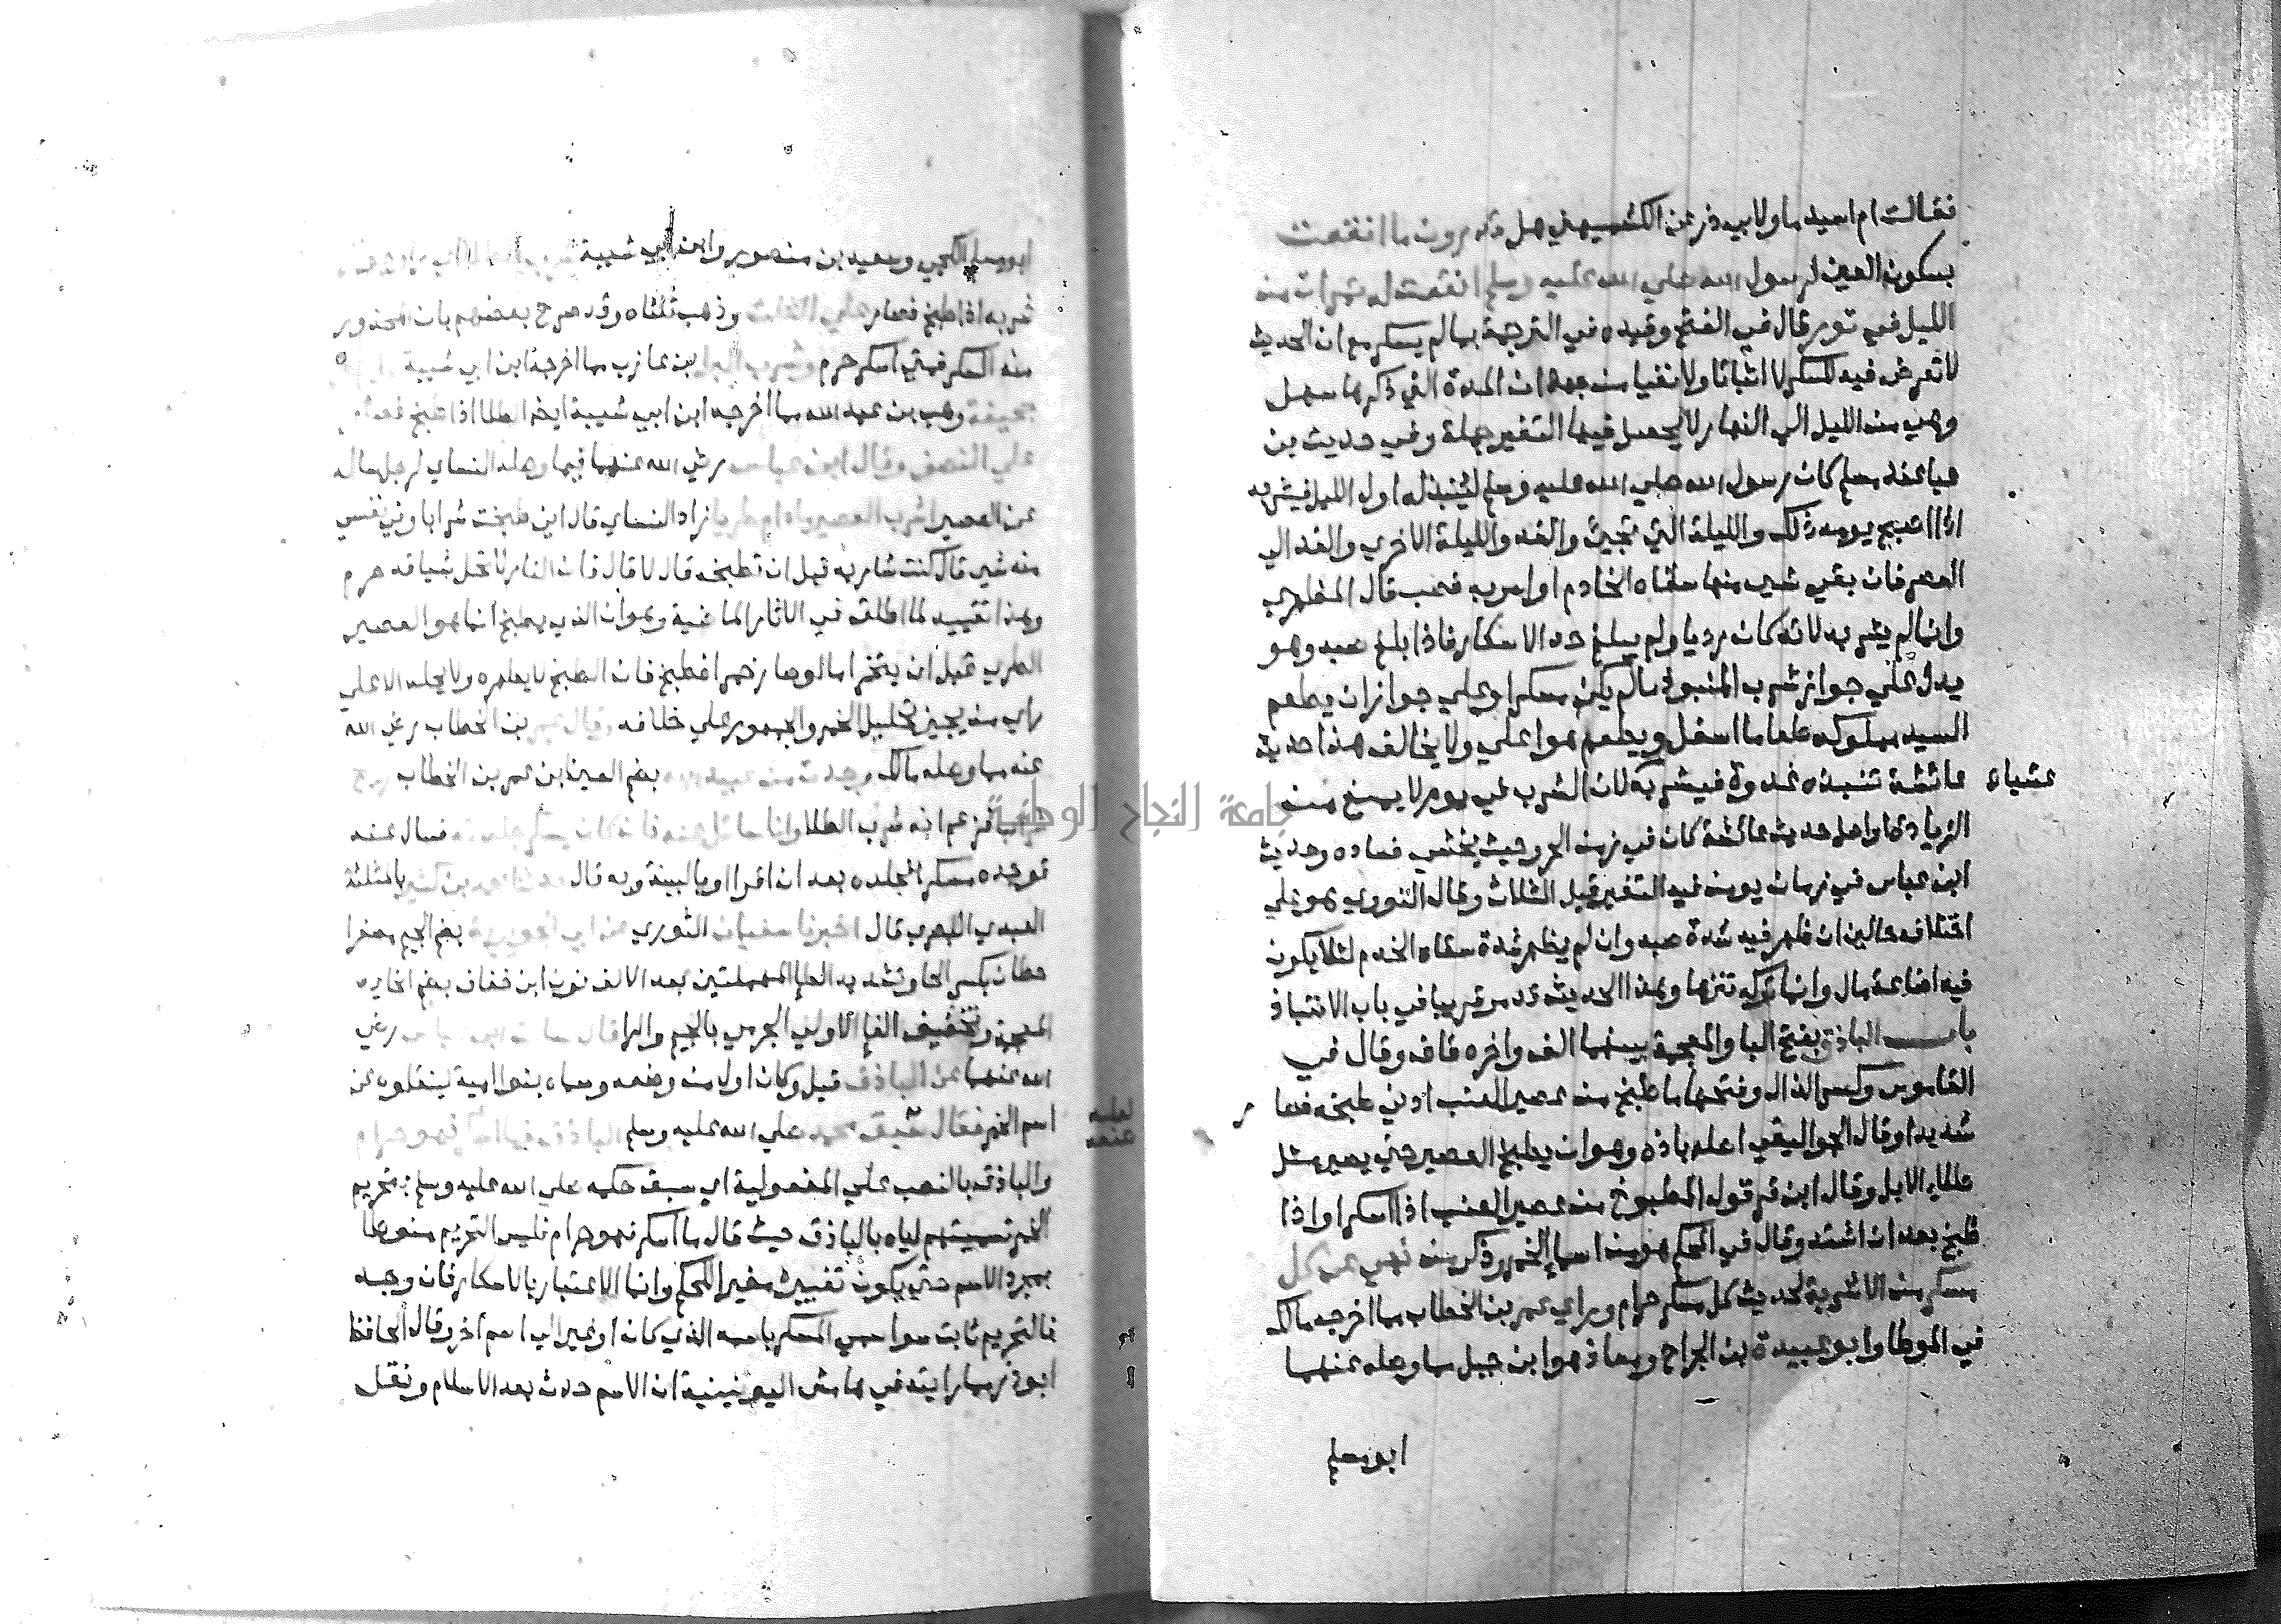 فقالت ام اسيد ما ولابي ذر عن الكشميهني هل تدرون ما انقعت
بسكون العين لرسول الله صلي الله عليه وسلم انقعت له تمرات من
الليل في تور قال في الفتح وقيده في الترجمة بما لم يسكر مع ان الحديث
لا تعرض فيه للسكر لا اثباتا ولا نفيا من جهة ان المدة التي ذكرها سهل
وهي من الليل الي النهار لا يحصل فيها التغير جملة وفي حديث بن
عباس عند مسلم كان رسول الله صلي الله عليه وسلم ينتبذ له اول الليل فيشربه
اذا اصبح يومه ذلك والليلة التي تجيئ والغد والليلة الاخري والغد الي
العصر فان بقي شي منها سقاه الخادم او امر به فصب قال المظهري
وانما لم يشربه لانه كان رديا ولم يبلغ حد الاسكار فاذا بلغ صبه وهو
يدل علي جواز شرب المنبوذ ما لم يكن مسكرا وعلي جواز ان يطعم
السيد مملوكه طعاما اسفل ويطعم هو اعلي ولا يخالف هذا حديث
عائشة تنبذه غدوة فيشربه لان الشرب في يوم لا يمنع من
عشياء
الزيادة او لعل حديث عائشة كان في زمن الحر وحيث يخشي فساده وحديث
ابن عباس في زمان يومن فيه التغير قبل الثلاث وقال النووي هو علي
اختلاف حالين ان ظهر فيه شدة صبه وان لم يظهر شدة سقاه الخدم لئلا يكون
فيه اضاعة مال وانما تركه تنزها وهذا الحديث قد مر قريبا في باب الانتباذ
باب الباذق بفتح البا والمعجمة بينهما الف واخره قاف وقال في
القاموس وكسر الذال وفتحها ما طبخ من عصير العنب ادني طبخه فصا
شديدا وقال الجواليقي اصله باذه وهو ان يطبخ العصير حتي يصير مثل
طلاء الابل وقال ابن قرقول المطبوخ من عصير العنب اذا اسكر او اذا
طبخ بعد ان اشتد وقال في المحكم هو من اسماء الخمر وذكر من نهي عن كل
مسكر من الاشربة لحديث كل مسكر حرام وراي عمر بن الخطاب مما اخرجه مالك
في الموطا وابو عبيدة بن الجراح ومعاذ هو ابن جبل مما وصله عنهما
ابو مسلم
ابو مسلم الكجي وسعيد بن منصور وابن ابي شيبة
شربه اذا طبخ فصار علي الثلث وذهب ثلثاه وقد صرح بعضهم بان المحذور
منه السكر فمتي اسكر حرم وشرب البراء بن عازب مما اخرجه ابن ابي شيبة
جحيفة وهب بن عبد الله مما اخرجه ابن ابي شيبة ايضا الطلا اذا طبخ فصار
علي النصف وقال ابن عباس رضي الله عنهما فيما وصله النساي لرجل ساله
عن العصير اشرب العصير ما دام طريا زاد النساي قال اني طبخت شرابا وفي نفسي
منه شي قال كنت شاربه قبل ان تطبخه قال لا قال فان النار لا تحل شيا قد حرم
وهذا تقييد لما اطلق في الاثار الماضية وهو ان الذي يطبخ انما هو العصير
الطري قبل ان يتخمر اما لو صار خمرا فطبخ فان الطبخ لا يطهره ولا يحله الا علي
راي من يجيز تحليل الخمر والجمهور علي خلافه وقال عمر بن الخطاب رضي الله
عنه مما وصله مالك وجدت من عبيد الله بضم العين ابن عمر بن الخطاب
فزعم انه شرب الطلا وانا سائل عنه فان كان فسال عنه
فوجده مسكرا فجلده بعد ان اقر او بالبينة وبه قال بن كثير بالمثلثة
العبدي البصري قال اخبرنا سفيان الثوري عن ابي الجويرية بضم الجيم مصغرا
حطان بكسر الحا وتشديد الطا المهملتين بعد الالف نون ابن خفاف بضم الخاء
المعجمة وتخفيف الفا الاولي الجرمي بالجيم والرا قال رضي
الله عنهما عن الباذق قيل وكان اول من وضعه وسماه بنوا امية لينقلوه عن
اسم الخمر فقال سبق محمد صلي الله عليه وسلم الباذق
لعله
عنه
والباذق بالنصب علي المفعولية اي سبق حكمه صلي الله عليه وسلم بتحريم
الخمر تسميتهم اياه بالباذق حيث قال ما اسكر فهو حرام فليس التحريم منوطا
بمجرد الاسم حتي يكون تغييره مغير الحكم وانما الاعتبار بالاسكار فان وجد
فالتحريم ثابت سوا سمي المسكر باسمه الذي كان او غير الي اسم اخر وقال الحافظ
ابو ذر مما رايته في هامش اليونينية ان الاسم حدث بعد الاسلام ونقل
جامعة النجاح الوطنية